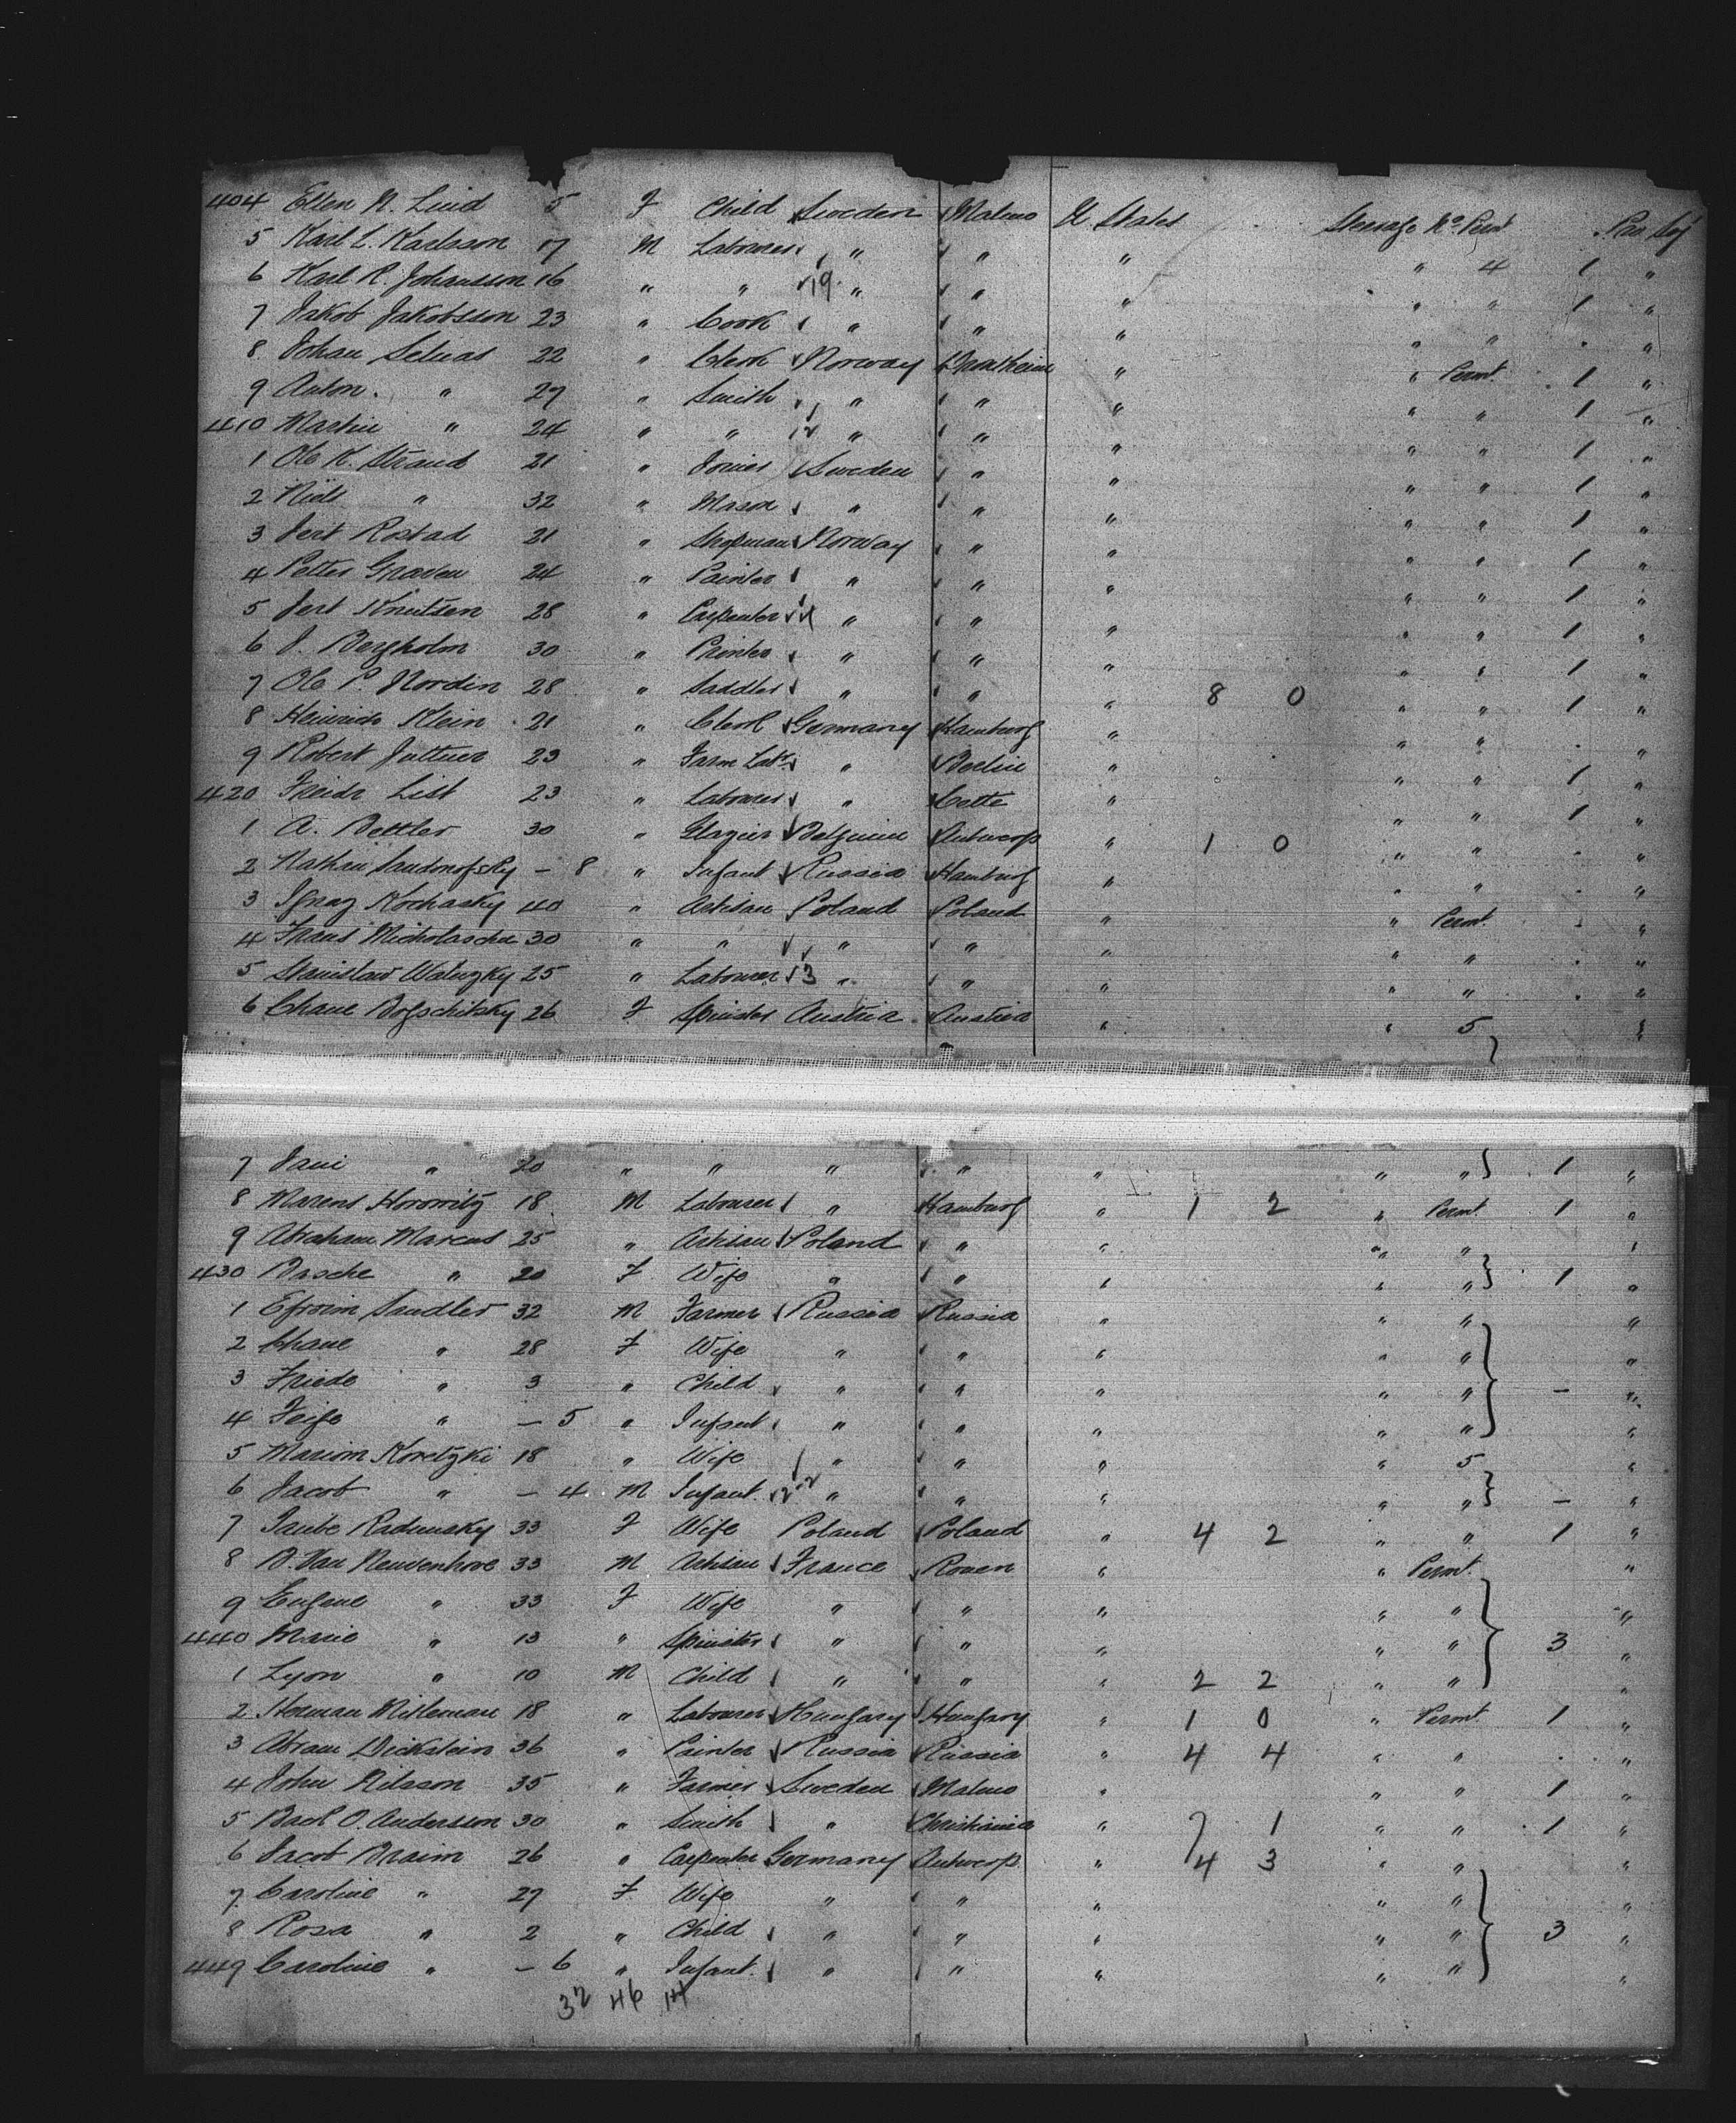 404 Ellen N. Lind 5 F Child Sweden Malmo U. States Steerage No Perm Pro Soj
5 Karl L. Karlsson 17 M Labourer " " " " 4 1 "
6 Karl R. Johansson 16 " " 19 " " " " " 1 "
7 Jakob Jakobsson 23 " Cook " " " " " . "
8 Johan Selnas 22 " Clerk Norway Drontheim " " Permt. 1 "
9 Anton. " 29 " Smith " " " " " 1 "
410 Martin " 24 " " 12 " " " " " 1 "
1 Ole K. Strand 21 " Joiner Sweden " " " " 1 "
2 Niels " 32 " Mason " " " " " 1 "
3 Jert Rostad 21 " Shopman Norway " " " " 1 "
4 Petter Graven 24 " Painter " " " " " 1 "
5 Jert Knutsen 28 " Carpenter " " " " " 1 "
6 J. Bergholm 30 " Printer " " " " " 1 "
7 Ole P. Nordin 28 " Saddler " " " 8 0 " " 1 "
8 Heinrich Klein 21 " Clerk Germany Hamburg " " " . "
9 Robert Juttner 23 " Farm Labr " Berlin " " " 1 "
420 Freidr List 23 " Labourer " " " " 1 "
1 A. Bettler 30 " Glazier Belgium Antwerp " 1 0 " " . "
2 Nathan Sandmofsky — 8 " Infant Russia Hamburg " " " . "
3 Ignaz Kochasky 40 " Artisan Poland Poland " " Permt. . "
4 Frans Micholascha 30 " " " " " " " . "
5 Stanislaw Waluzky 25 " Labourer 3 " " " " " . "
6 Chane Bofschitsky 26 F Spinster Austria Austria " " 5 "
7 Jani " 20 " " " " " " " 1 "
8 Marens Horowitz 18 M Labourer " Hamburg " 1 2 " Permt. 1 "
9 Abraham Marcus 25 " Artisan Poland " " " " "
430 Basche " 20 F Wife " " " " " 1 "
1 Efroim Sandler 32 M Farmer Russia Russia " " " "
2 Chane " 28 F Wife " " " " " "
3 Friede " 3 " Child " " " " " — "
4 Feige " — 5 " Infant " " " " " "
5 Mariom Koretzki 18 " Wife " " " " 5 "
6 Jacob " — 4 M Infant. " " " " " — "
7 Taube Radunsky 33 F Wife Poland Poland " 4 2 " " 1 "
8 B. Van Neuvenhove 33 M Artisan France Rouen " " Permt. "
9 Eugene " 33 F Wife " " " " " "
440 Marie " 13 " Spinster " " " " " 3 "
1 Lyon " 10 M Child " " " 2 2 " " "
2 Herman Misleman 18 " Labourer Hungary Hungary " 1 0 " Permt. 1 "
3 Abram Dickstein 36 " Painter Russia Russia " 4 4 " " . "
4 John Nilsson 35 " Farmer Sweden Malmo " " " 1 "
5 O. Andersson 30 " Smith " Christiania " 7 1 " " 1 "
6 Jacob Braim 26 " Carpenter Germany Antwerp " 4 3 " " "
7 Caroline " 27 F Wife " " " " " "
8 Rosa " 2 " Child " " " " " 3 "
449 Caroline " — 6 " Infant. " " " " " "
32 46 14